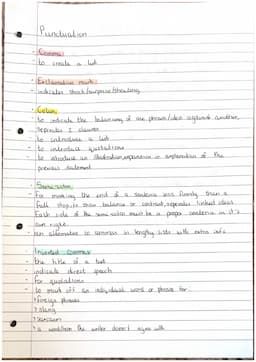 Punctuation
Comma:
- to create a list
Exclamation mark:
- indicates shock/surprise/shouting
Colon
- to indicate the balancing of one phrase/idea against another,
seperates 2 clauses
- to introduce a list
- to introduce quotations
- to introduce an illustration, expansion or explanation of the
previous statement
Semi-colon
- For marking the end of a sentence less firmly than a
full stop, to show balance or contrast, seperates linked ideas
Each side of the semi-colon must be a proper sentence in it's
own right.
- an alternative to commas in lengthy lists with extra info
Inverted commas
- the title of a text
- indicate direct speech
- for quotations
- to mark off an individual word or phrase for:
* foreign phrases
* slang
* sarcasm
* a word/term the writer doesn't agree with